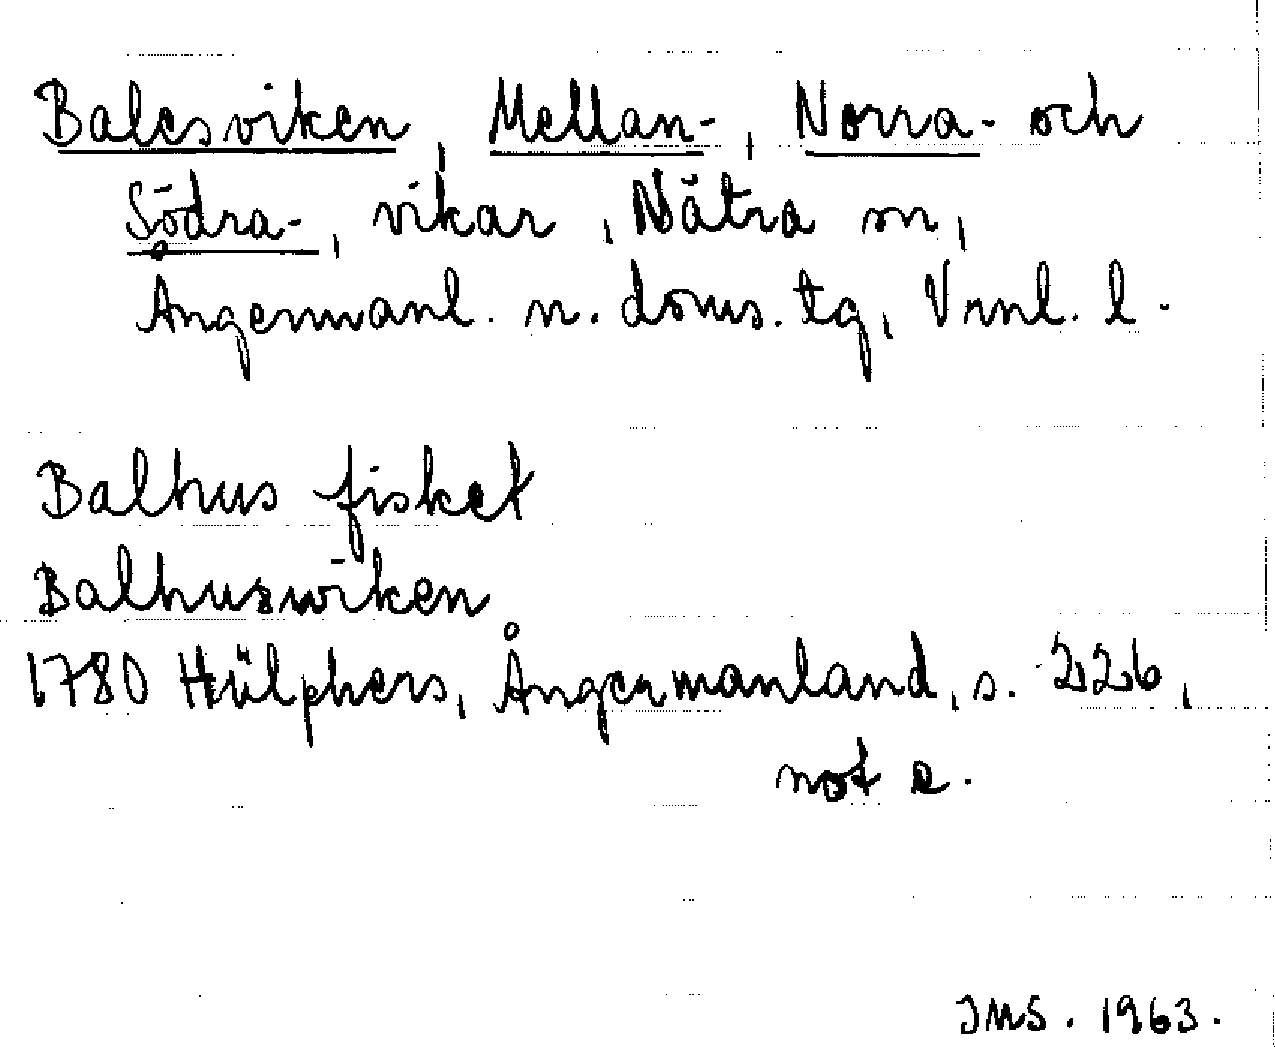 Balesviken, Mellan-, Norra- och
Södra-, vikar, Nätra sn,
Ångermanl. n. doms. tg, Vrnl. l.
Balhus fisket
Balhuswiken
1780 Hülphers, Ångermanland, s. 226,
not e.
JMS. 1963.